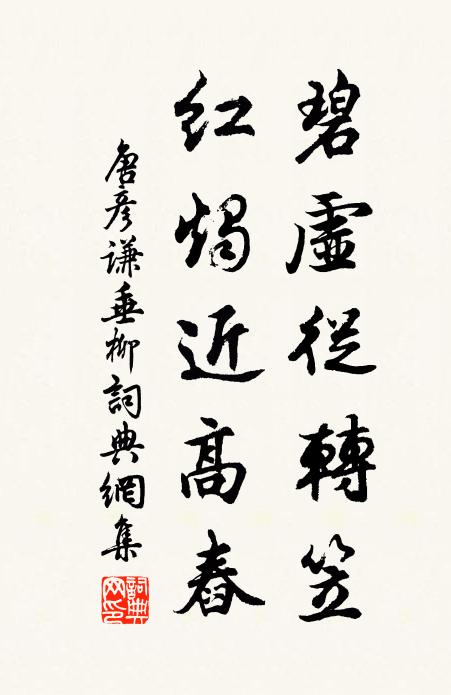 碧虛從轉笠
紅燭近高舂
唐彥謙垂柳詞典網集
詞典網印